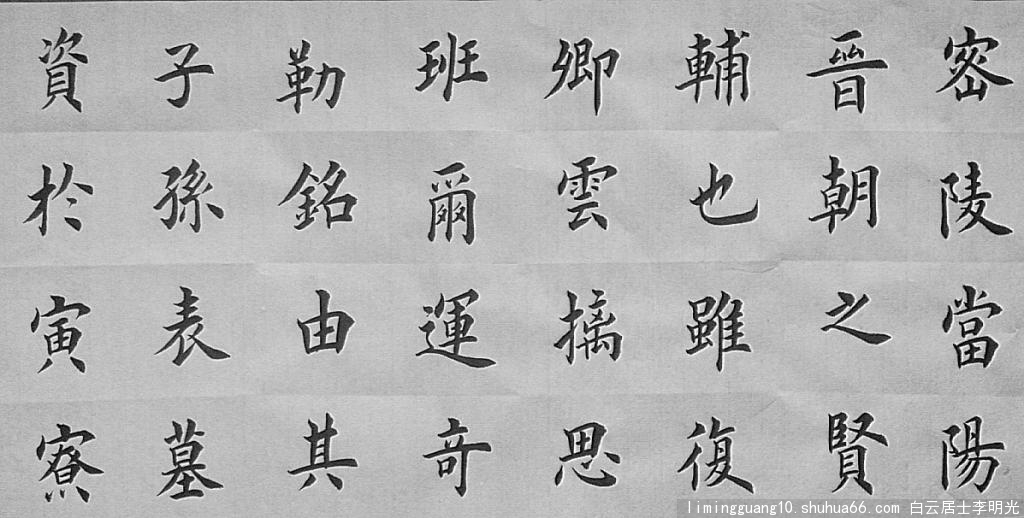 密陵當陽
晉朝之賢
輔也雖復
卿雲摛思
班爾運奇
勒銘由其
子孫表墓
資於寅寮
limingguang10.shuhua66.com 白云居士李明光